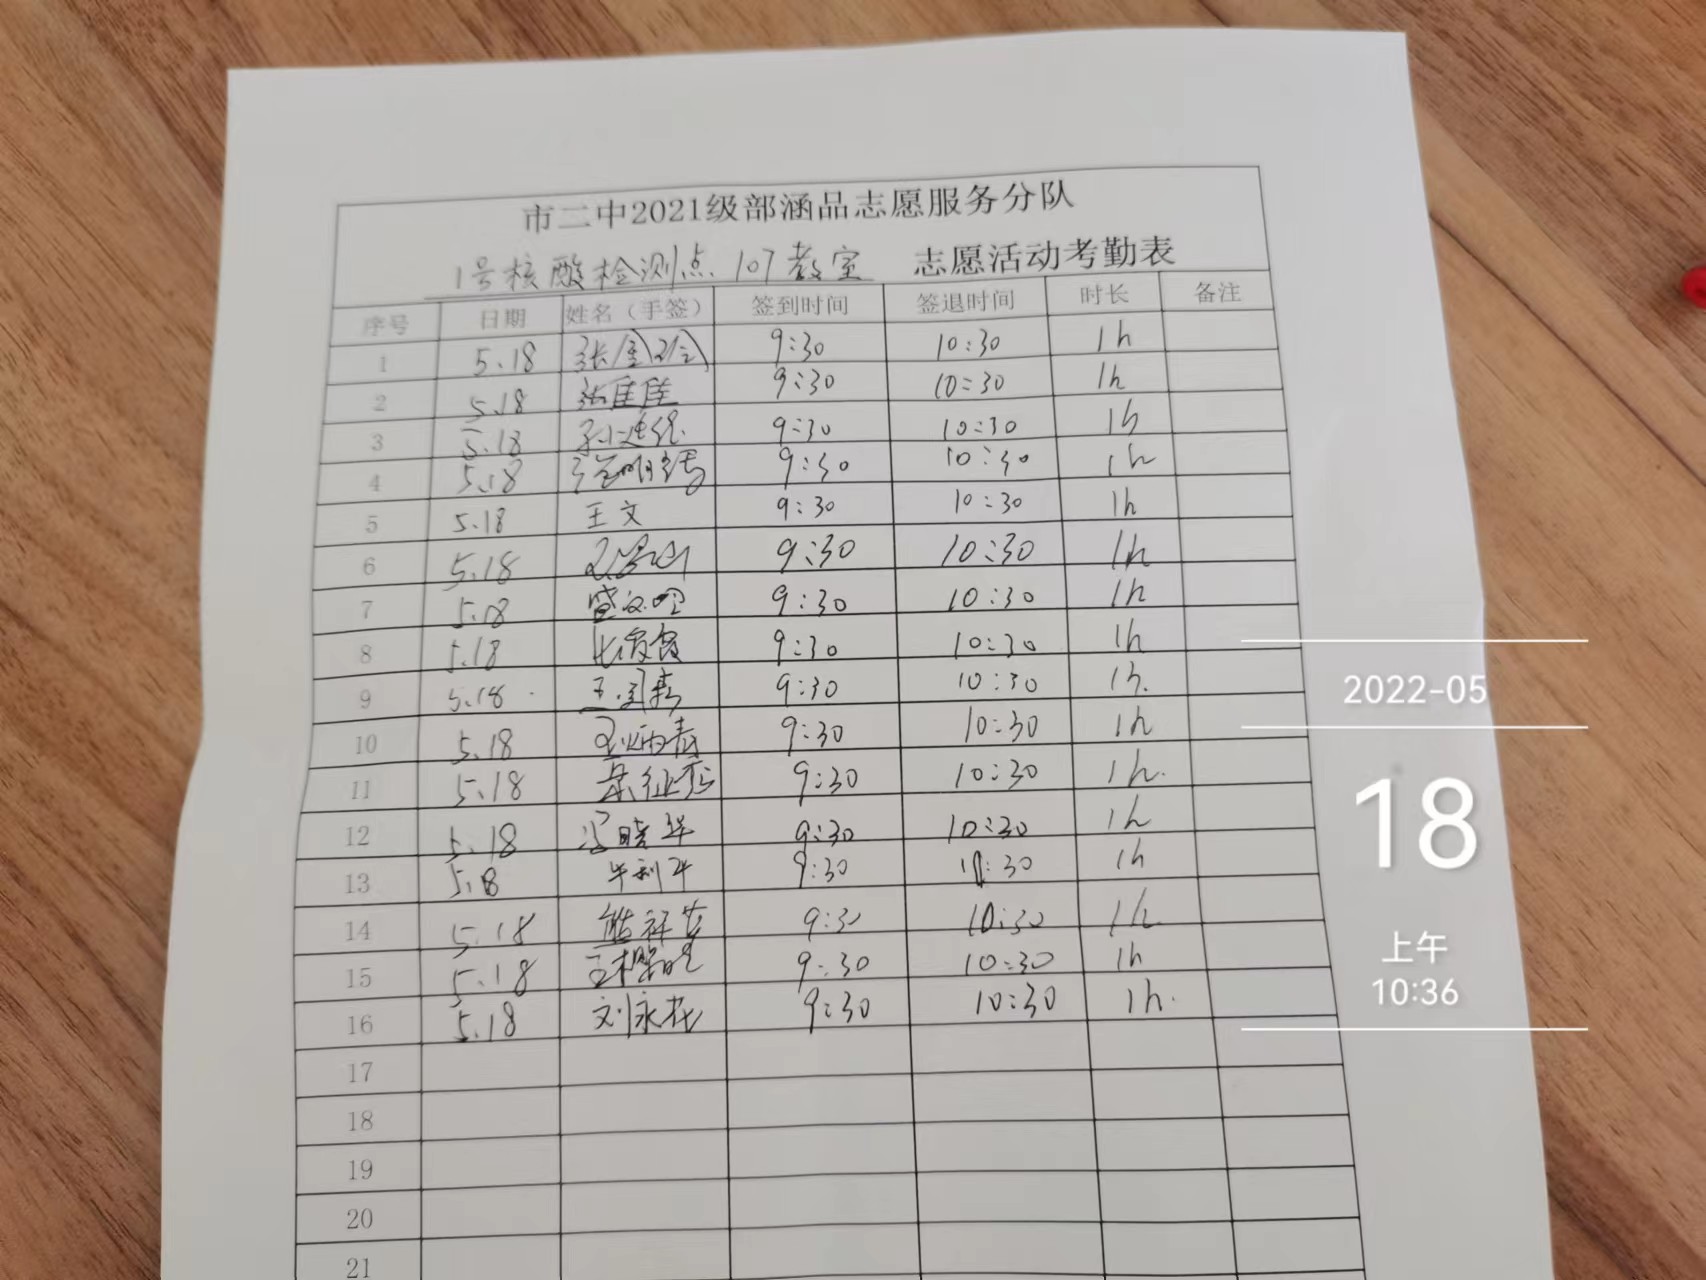 市二中2021级部涵品志愿服务分队
1号核酸检测点 107教室 志愿活动考勤表
序号 日期 姓名（手签） 签到时间 签退时间 时长 备注
1 5.18 9:30 10:30 1h
2 5.18 9:30 10:30 1h
3 5.18 9:30 10:30 1h
4 5.18 9:30 10:30 1h
5 5.18 王文 9:30 10:30 1h
6 5.18 9:30 10:30 1h
7 5.18 9:30 10:30 1h
8 5.18 9:30 10:30 1h
9 5.18 9:30 10:30 1h.
10 5.18 9:30 10:30 1h
11 5.18 9:30 10:30 1h.
12 5.18 冯晓华 9:30 10:30 1h
13 5.18 9:30 10:30 1h
14 5.18 9:30 10:30 1h
15 5.18 9:30 10:30 1h
16 5.18 刘永花 9:30 10:30 1h.
17
18
19
20
21
2022-05
18
上午
10:36